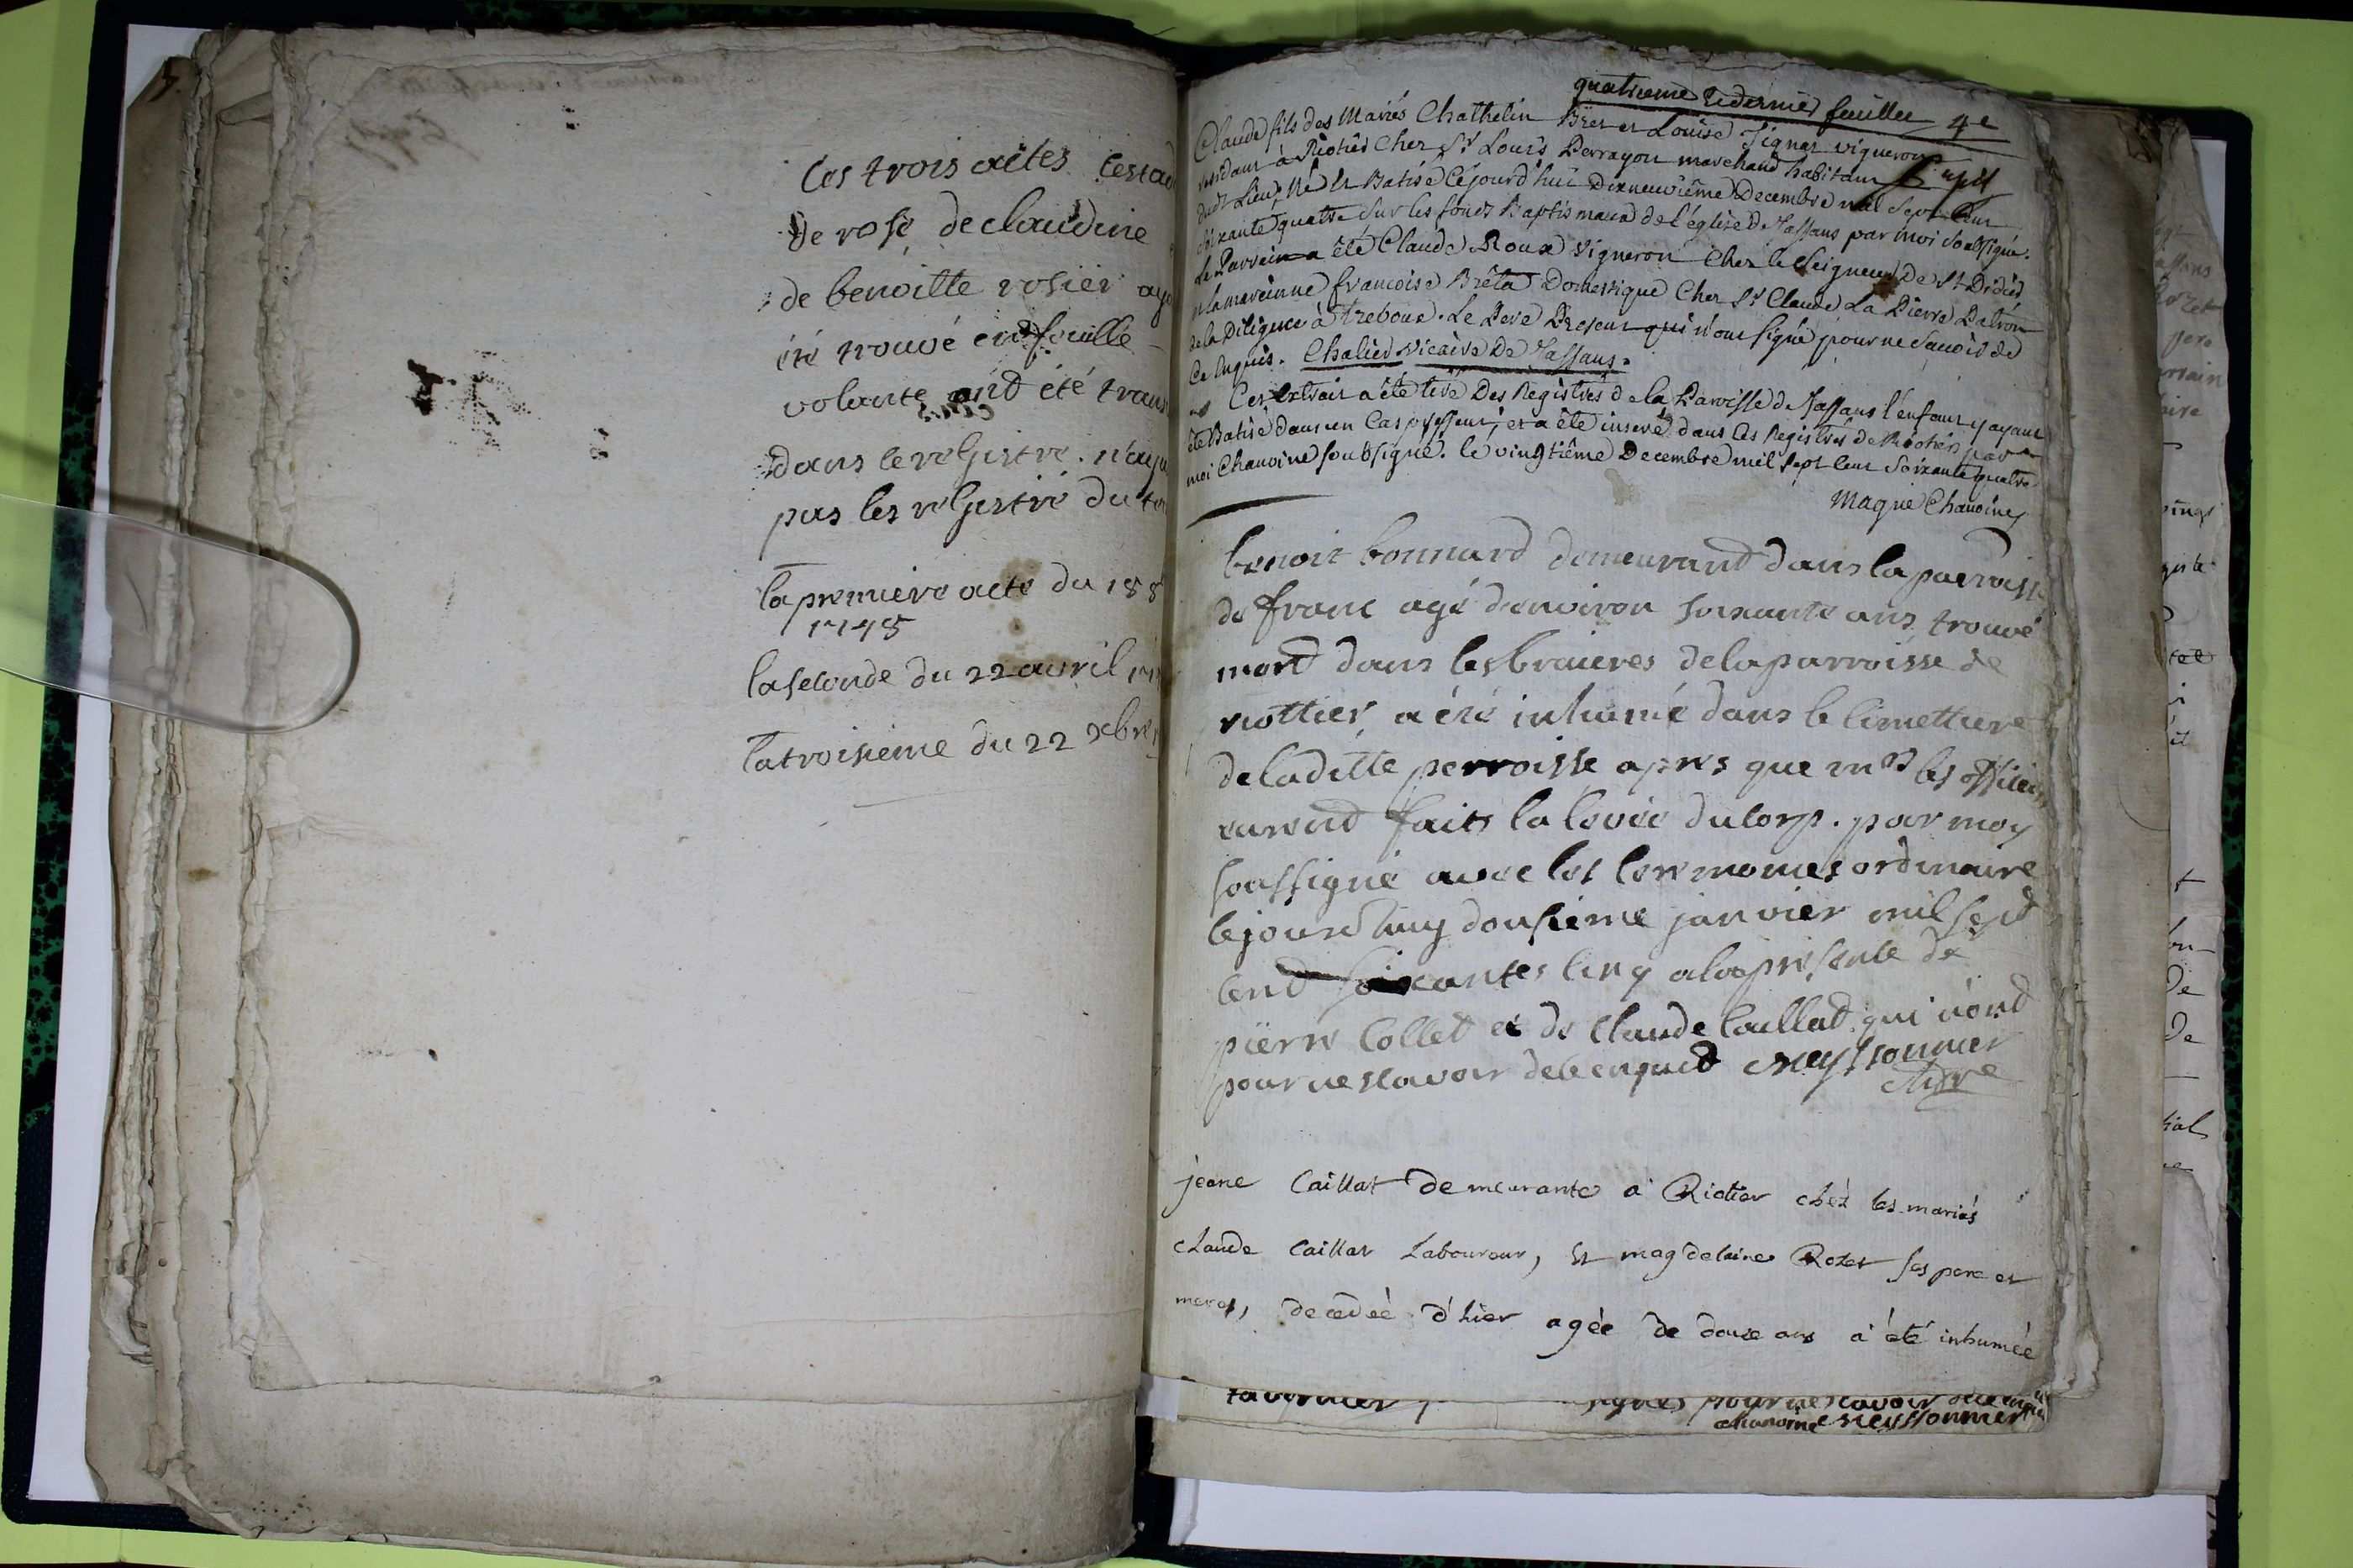 Ces trois actes
de rose de claudine
de benoitte rosier
été trouvé en feuille
volante ont été
dans le regestre. n'aya
pas les regestre du
la premiere acte du 18
1748
la seconde du 22 avril
la troisieme du 22 xbre
quatrieme et dernier feuillet 4e
Claude fils des Mariés Chathelin Bret et Louise Signar vigneron
residant à Riotier Chez Sr Louis Perrayon marchand habitant
dudt Lieu, Né et Batisé Cejourd'hui Dixneuvième Decembre mil Sept Cent
Soixante quatre Sur les fonds Baptismaux de l'église De Jassans par moi Soubsigné.
Le Parrein a été Claude Roux vigneron Chez le Seigneur De St Didier
et la mareinne francoise Brêta Domestique Chez Sr Claude La Pierre Patron
de la Diligence à Trevoux. Le Pere Present qui n'ont Signé pour ne Savoir de
ce Enquis. Chalier vicaire De Jassans.
Cet Extrait a été tiré Des Registres de la Paroisse de Jassans l'enfant y ayant
été Batisé dans un Cas pressent, et a été inseré dans les Registres de Riotier par
moi Chanoine soubsigné. le vingtième Decembre mil Sept Cent Soixante quatre
Magnie Chanoine
benoit bonnard demeurand dans la parroisse
de franc agé denviron soixante ans trouvé
mord dans les bruieres de la parroisse de
riottier, a été inhumé dans le cimettiere
de laditte perroisse apres que mrs les officiers
eurend faits la levée du corp. par moy
soussigné avec les ceremonies ordinaire
cejourdhuy dousieme janvier mil sept
cend soixantes cinq a la presence de
pierre Collet et de Claude Caillat qui n'ond
pour ne scavoir de ce enquid Neyssonnier
jeane Caillat demeurante à Riotier chez les mariés
claude Caillat Laboureur, Et magdelaine Rozet ses pere et
meres, decedeé d'hier agée de douse ans à été inhumée
signes pour ne scavoir de ce enquis
chanoine Neyssonnier